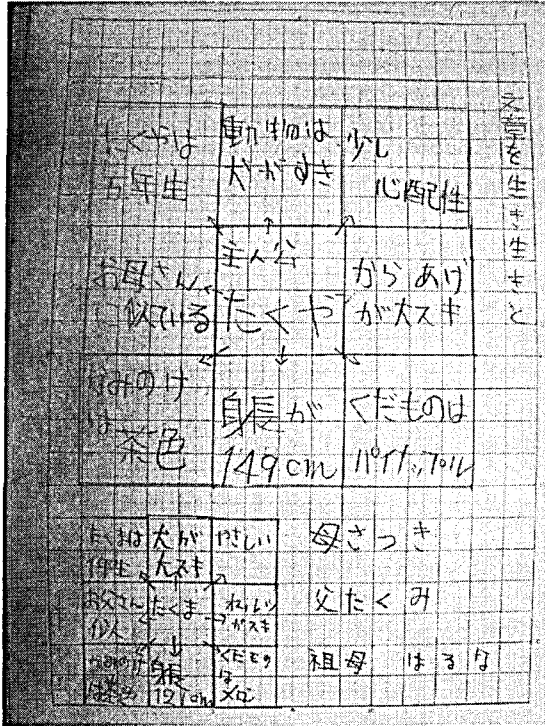 文章を生き生きと
たくやは
五年生
動物は
犬がすき
少し
心配性
お母さん
に似ている
主人公
たくや
からあげ
が大スキ
かみのけ
は茶色
身長が
149cm
くだものは
パイナップル
たくまは
年生
犬が
大スキ
やさしい
お父さん
似
たくま
がスキ
かみのけ
は茶色
身長
cm
くだもの
は
メロン
母さつき
父たくみ
祖母 はるな